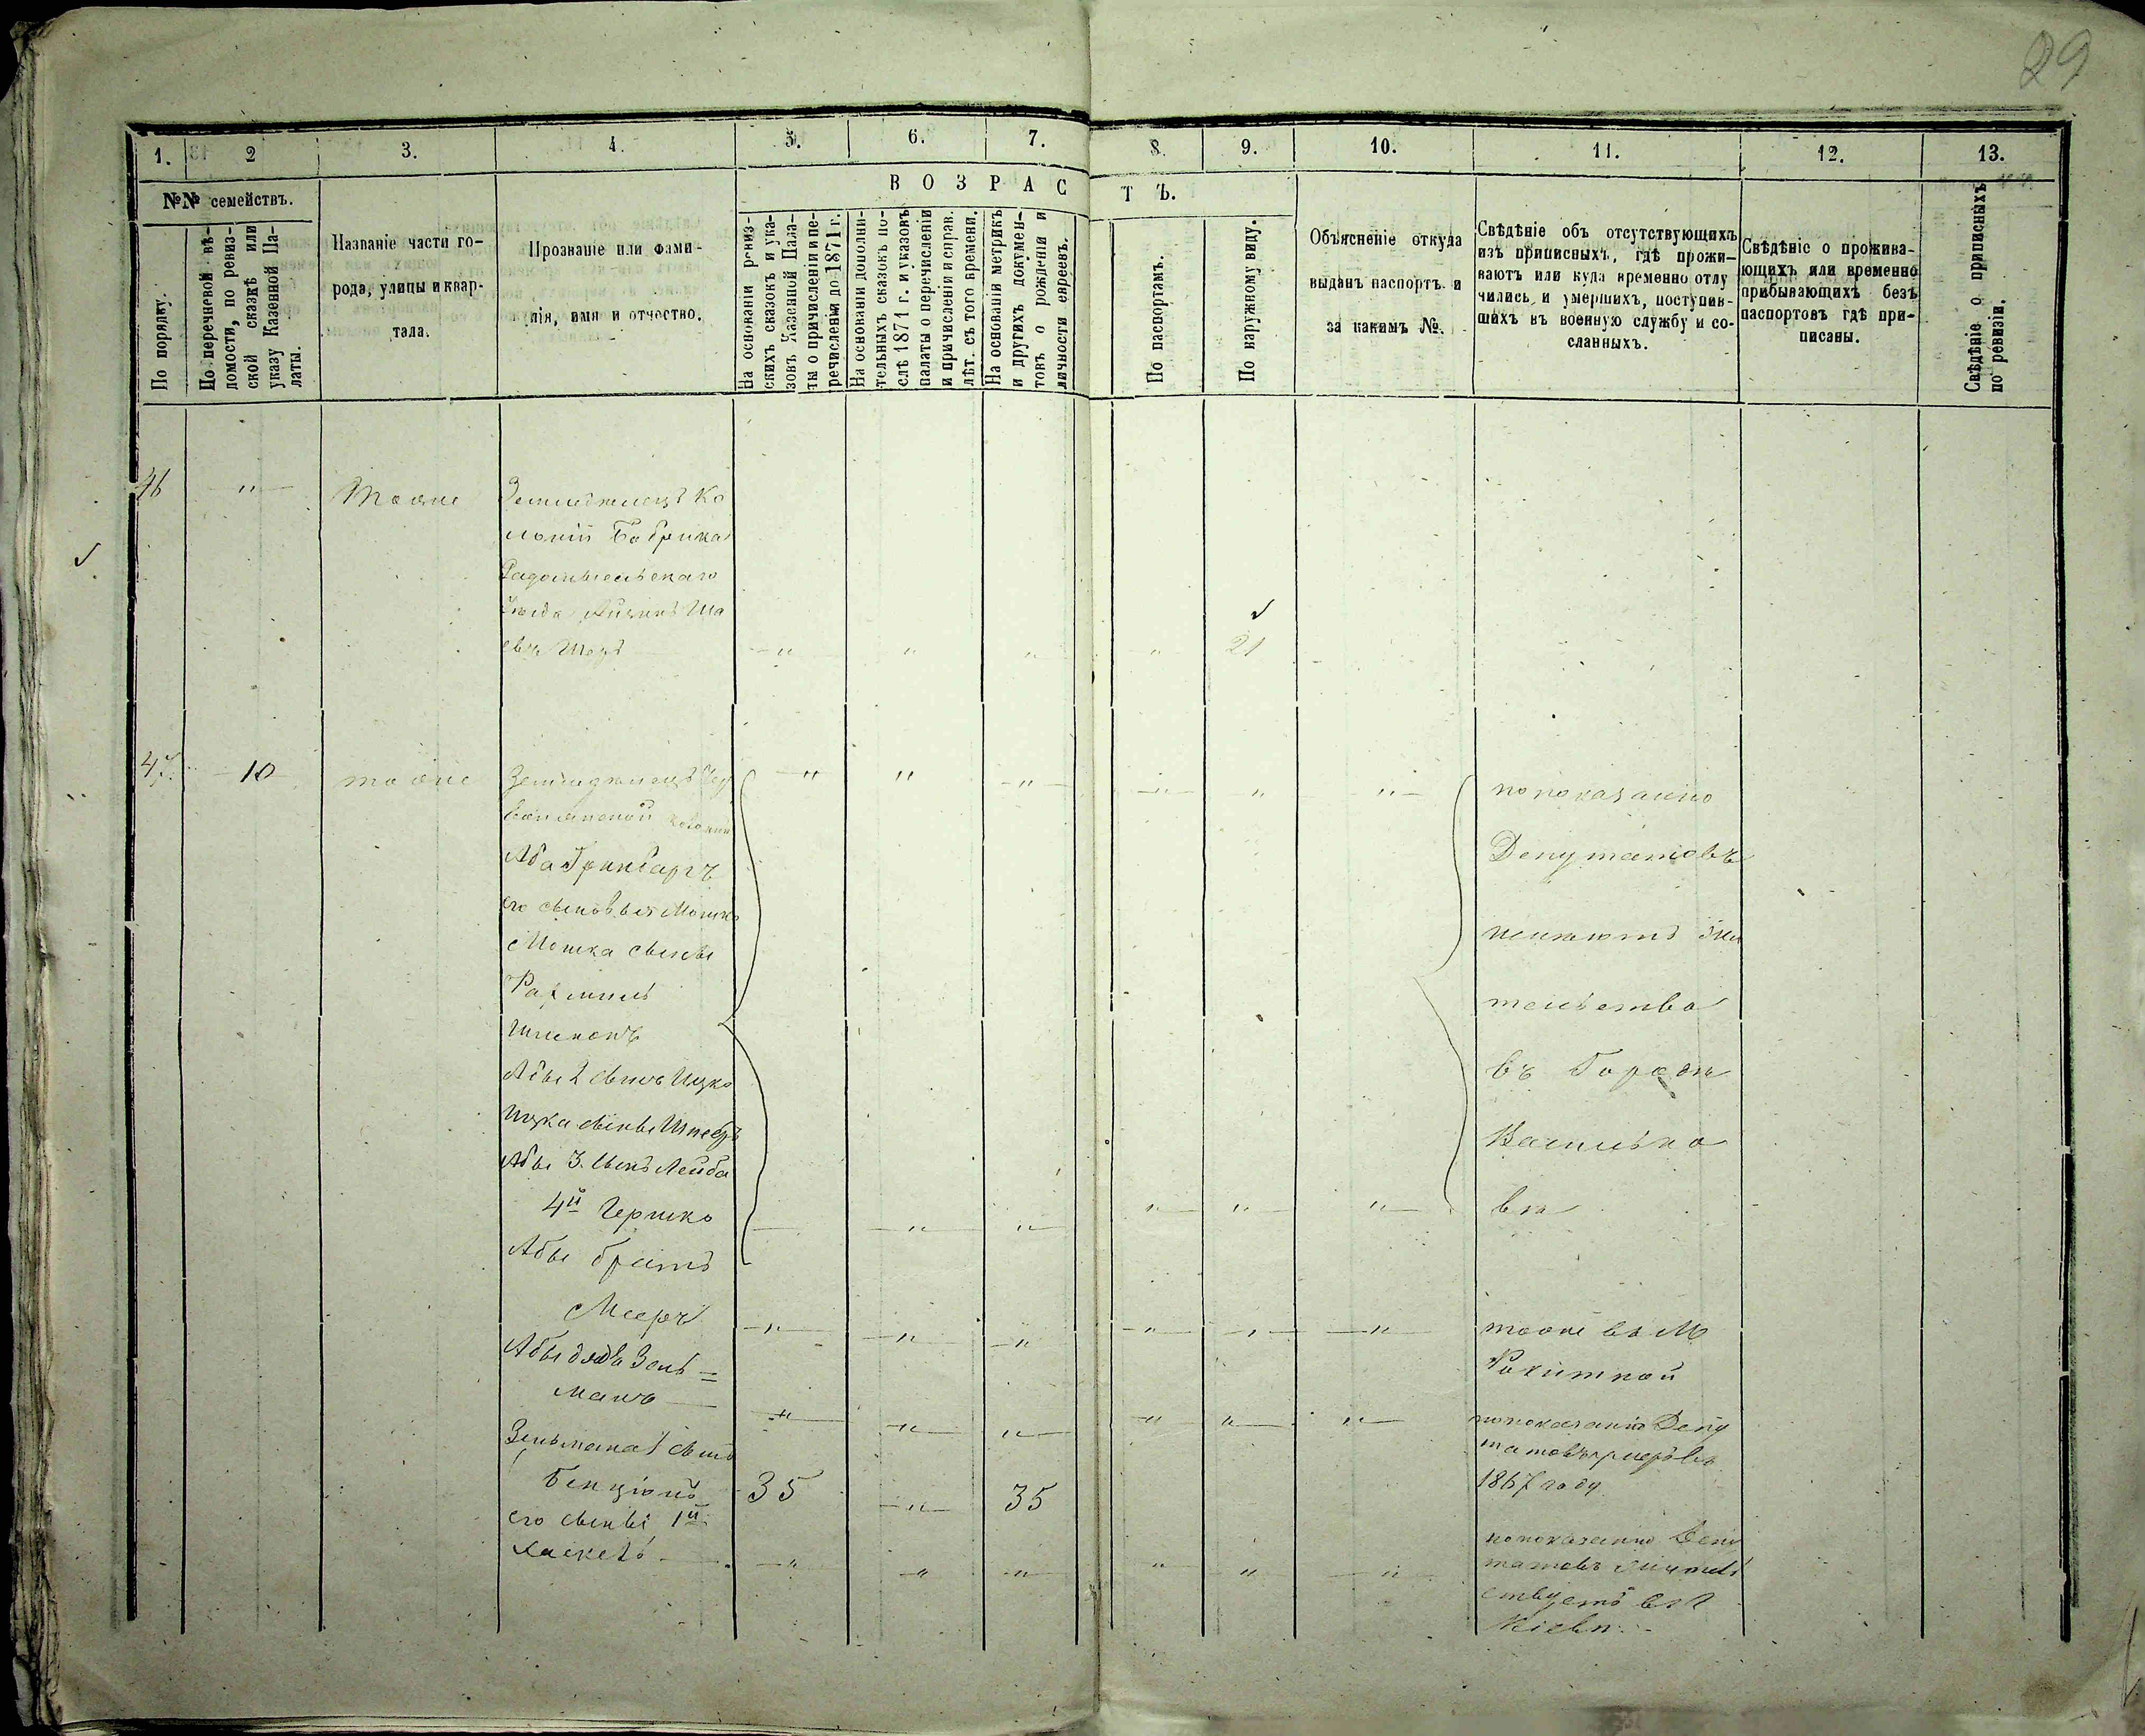 29
1. 2 3. 4. 5. 6. 7. 8. 9. 10. 11. 12. 13.
В О З Р А С Т Ъ.
№№ семействъ.
По порядку.
По перечневой вѣ-
домости, по ревиз-
ской сказкѣ или
указу Казенной Па-
латы.
Названіе части го-
рода, улицы и квар-
тала.
Прозваніе или фами-
лія, имя и отчество.
На основаніи ревиз-
скихъ сказокъ и ука-
зовъ Казенной Пала-
ты о причисленіи и пе-
речисленіи до 1871 г.
На основаніи дополни-
тельныхъ сказокъ по-
слѣ 1871 г. и указовъ
палаты о перечисленіи
и причисленіи и справ.
лѣт. съ того времени.
На основаніи метрикъ
и другихъ докумен-
товъ о рожденіи и
личности евреевъ.
По паспортамъ.
По наружному виду.
Объясненіе откуда
выданъ паспортъ и
за какимъ №.
Свѣдѣніе объ отсутствующихъ
изъ приписныхъ, гдѣ прожи-
ваютъ или куда временно отлу
чились и умершихъ, поступив-
шихъ въ военную службу и со-
сланныхъ.
Свѣдѣніе о прожива-
ющихъ или временно
прибывающихъ безъ
паспортовъ гдѣ при-
писаны.
Свѣдѣніе о приписныхъ
по ревизіи.
46 " тоже Земледѣлецъ Ко
лоніи Фабрика
Радомысльскаго
Уѣзда
" " " " 21
47 10 тоже Земледѣлецъ
колоніи
Аба Гринбаргъ
его сыновья Мошко
Мошка сыновья
Рахмиль
Шлиомъ
Абы 2 сынъ Ицко
Ицка сынъ
Абы 3. сынъ Лейба
4й Гершко
Абы братъ
Мееръ
Абы дядя Зель=
манъ
Зельмана 1 сынъ
Бенціонъ 35 " 35
его сынъ 1й
Хаскель
по показанію
Депутатовъ
имѣютъ жи
тельство
въ Городѣ
Василько
вѣ
тоже въ М
Ракитной
по показанію Депу
татовъ умеръ въ
1867 году
по показанію Депу
татовъ жительствуетъ въ г
Кіевѣ.